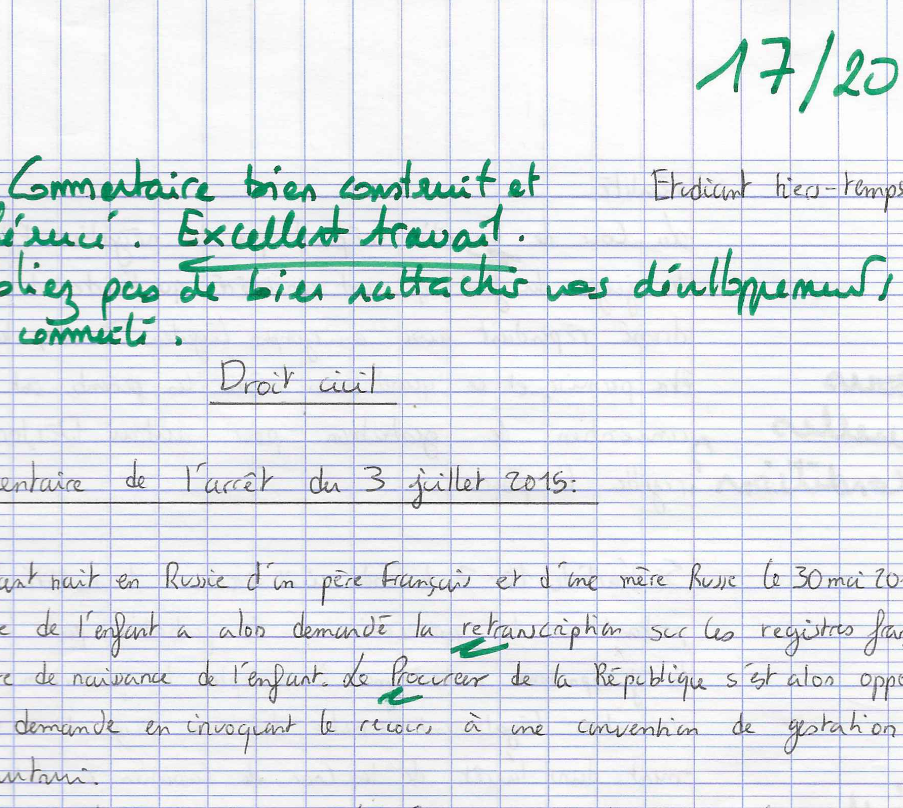 17/20
Commentaire bien construit et
Etudiant tiers-temps
érencé. Excellent travail.
bliez pas de bien rattacher vos développements
commenté.
Droit civil
entaire de l'arrêt du 3 juillet 2015:
ant nait en Russie d'un père Français et d'une mère Russe le 30 mai 20
e de l'enfant a alors demandé la retranscription sur les registres fra
e de naissance de l'enfant. Le Procureur de la République s'est alors oppo
demande en invoquant le recours à une convention de gestation
autrui.